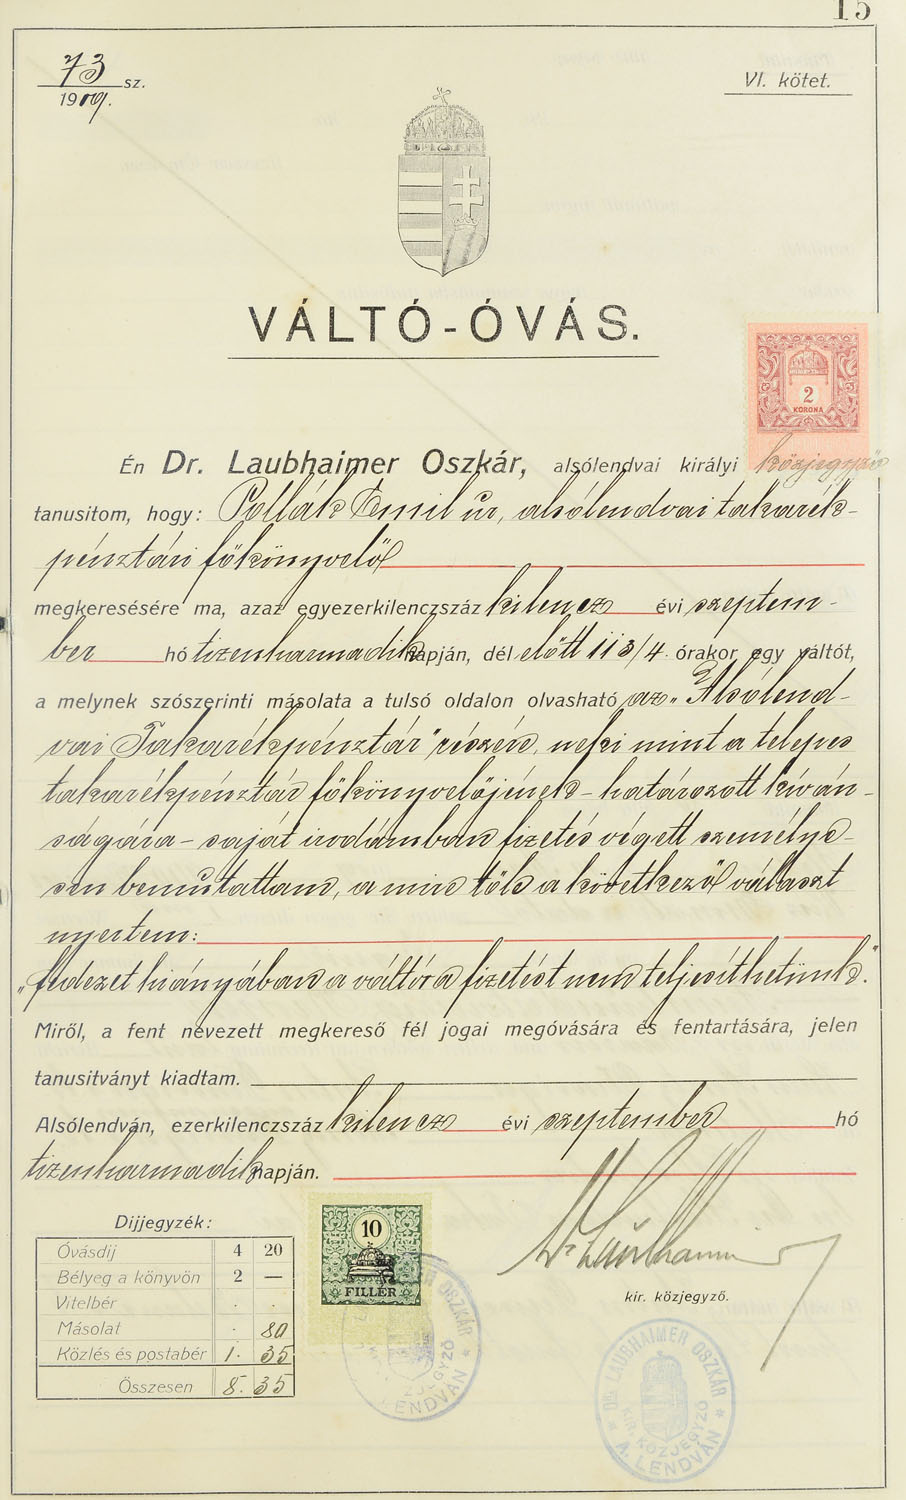 15
73 sz.
1909.
VI. kötet.
VÁLTÓ-ÓVÁS.
2
KORONA
Én Dr. Laubhaimer Oszkár, alsólendvai királyi közjegyző
tanusitom, hogy: Pollák Emil úr, alsólendvai takarék-
pénztári főkönyvelő
megkeresésére ma, azaz egyezerkilenczszáz kilencz évi szeptem-
ber hó tizenharmadik napján, dél előtt 11 3/4 órakor egy váltót,
a melynek szószerinti másolata a tulsó oldalon olvasható az „Alsólend-
vai Takarékpénztár" részére, neki mint a telepes
takarékpénztár főkönyvelőjének - határozott kíván-
ságára - saját irodámban fizetés végett személye-
sen bemutattam, a mire tőle a következő választ
nyertem:
„fedezet hiányában a váltóra fizetést nem teljesíthetünk."
Miről, a fent nevezett megkereső fél jogai megóvására és fentartására, jelen
tanusitványt kiadtam.
Alsólendván, ezerkilenczszáz kilencz évi szeptember hó
tizenharmadik napján.
Díjjegyzék:
Óvásdij 4 20
Bélyeg a könyvön 2 —
Vitelbér . .
Másolat . 80
Közlés és postabér 1. 35
Összesen 8. 35
10
FILLÉR
Dr Laubhaimer
kir. közjegyző.
OSZKÁR
LENDVÁN
Dr. LAUBHAIMER OSZKÁR
KIR. KÖZJEGYZŐ
A. LENDVÁN